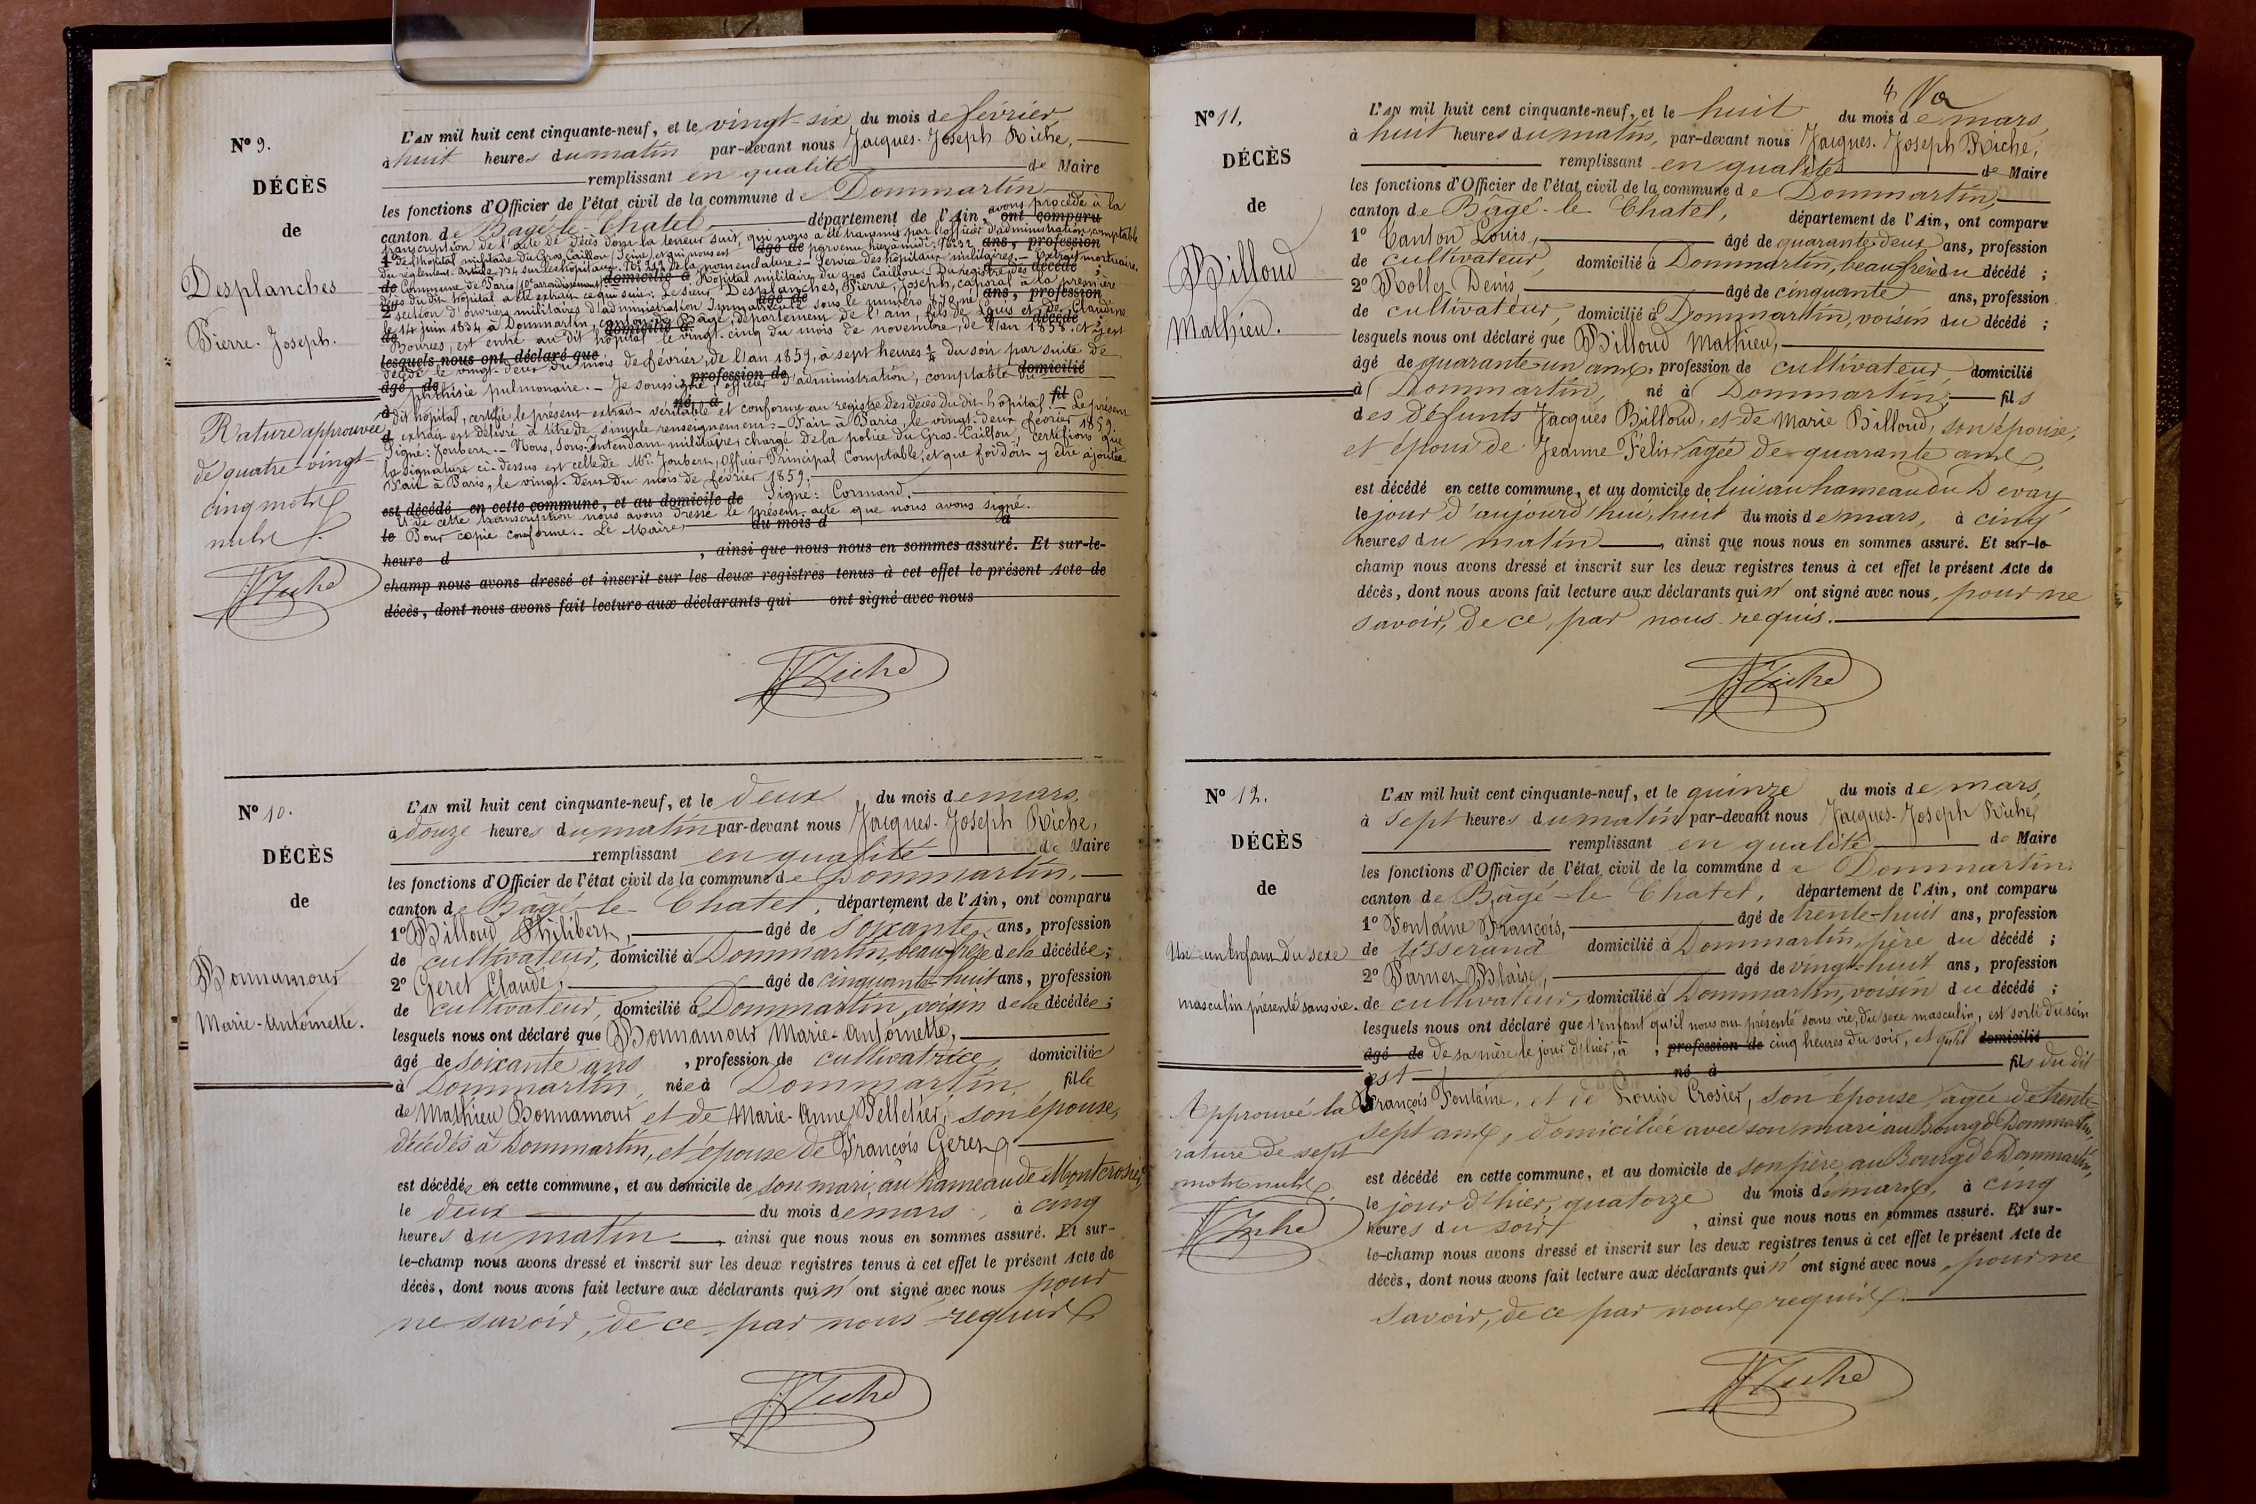 N° 9.
DÉCÈS
de
Desplanches
Pierre-Joseph.
Rature approuvée
de quatre-vingt
cinq mots
nuls.
Riche
L'AN mil huit cent cinquante-neuf, et le vingt-six du mois de février,
à huit heures du matin par-devant nous Jacques-Joseph Riche,
remplissant en qualité de Maire
les fonctions d'Officier de l'état civil de la commune de Dommartin
canton de Bâgé-le-Chatel, département de l'Ain, avons procédé à la ont comparu
transcription de l'acte de décès dont la teneur suit, qui nous a été transmis par l'officier d'administration comptable
1° de l'hôpital militaire du Gros Caillou (Seine) et qui nous est âgé de parvenu hier à midi: ans, profession
du règlement. article 734 sur les hôpitaux. de la nomenclature. - Service des hôpitaux militaires. - Extrait mortuaire.
de Commune de Paris (10e arrondissement) domicilié à Hôpital militaire du gros Caillou. - Du registre des décédé ;
décès du dit hôpital a été extrait ce qui suit: Le sieur Desplanches, Pierre, Joseph, caporal à la première
2° section d'ouvriers militaires d'administration Immatriculé âgé de sous le numéro né ans, profession
le 14 juin 1834 à Dommartin, canton de Bâgé, département de l'ain, fils de Louis et de Claudine
de Bourres, est entré au dit domicilié à hôpital le vingt-cinq du mois de novembre, de l'an 1858. et y est décédé
lesquels nous ont déclaré que
décédé le vingt-deux du mois de février, de l'an 1859, à sept heures ½ du soir par suite de
âgé de phthisie pulmonaire. - Je soussigné, profession de officier d'administration, comptable du domicilié
à dit hôpital, certifie le présent extrait né à véritable et conforme au registre des décès du dit hôpital. - fil Le présent
d extrait est délivré à titre de simple renseignement. - Fait à Paris, le vingt-deux février 1859.
Signé: Joubert. - Nous, Sous-Intendant militaire, chargé de la police du Gros-Caillou, certifions que
la signature ci-dessus est celle de Mr. Joubert, Officier Principal Comptable, et que foi doit y être ajoutée
Fait à Paris, le vingt-deux du mois de février 1859.
est décédé en cette commune, et au domicile de Signé: Cormand.
Et de cette transcription nous avons dressé le présent acte que nous avons signé.
le Pour copie conforme. - Le Maire, du mois d à
heure d , ainsi que nous nous en sommes assuré. Et sur-le-
champ nous avons dressé et inscrit sur les deux registres tenus à cet effet le présent Acte de
décès, dont nous avons fait lecture aux déclarants qui ont signé avec nous
Riche
N° 10.
DÉCÈS
de
Bonnamour
Marie-Antoinette.
L'AN mil huit cent cinquante-neuf, et le deux du mois de mars,
à douze heures du matin par-devant nous Jacques-Joseph Riche,
remplissant en qualité de Maire
les fonctions d'Officier de l'état civil de la commune de Dommartin,
canton de Bâgé-le-Chatel, département de l'Ain, ont comparu
1° Billoud Philibert, âgé de soixante ans, profession
de cultivateur, domicilié à Dommartin, beau-frère de la décédée ;
2° Geret Claude, âgé de cinquante-huit ans, profession
de cultivateur, domicilié à Dommartin, voisin de la décédée ;
lesquels nous ont déclaré que Bonnamour Marie-Antoinette,
âgé de soixante ans, profession de cultivatrice, domiciliée
à Dommartin, née à Dommartin, fille
de Mathieu Bonnamour et de Marie-Anne Pelletier, son épouse,
décédés à Dommartin, et épouse de François Geret
est décédée en cette commune, et au domicile de son mari, au hameau de Montcrosier,
le deux du mois de mars, à cinq
heures du matin, ainsi que nous nous en sommes assuré. Et sur-
le-champ nous avons dressé et inscrit sur les deux registres tenus à cet effet le présent Acte de
décès, dont nous avons fait lecture aux déclarants qui n' ont signé avec nous pour
ne savoir, de ce par nous requis
Riche
4
N° 11.
DÉCÈS
de
Billoud
Mathieu.
L'AN mil huit cent cinquante-neuf, et le huit du mois de mars,
à huit heures du matin, par-devant nous Jacques-Joseph Riche,
remplissant en qualité de Maire
les fonctions d'Officier de l'état civil de la commune de Dommartin,
canton de Bâgé-le Chatel, département de l'Ain, ont comparu
1° Canton Louis, âgé de quarante-deux ans, profession
de cultivateur, domicilié à Dommartin, beau-frère du décédé ;
2° Rollet Denis âgé de cinquante ans, profession
de cultivateur, domicilié à Dommartin, voisin du décédé ;
lesquels nous ont déclaré que Billoud Mathieu,
âgé de quarante-un ans, profession de cultivateur, domicilié
à Dommartin, né à Dommartin, fils
des défunts Jacques Billoud, et de Marie Billoud, son épouse,
et époux de Jeanne Félix âgée de quarante ans,
est décédé en cette commune, et au domicile de lui au hameau du Devay
le jour d'aujourd'hui, huit du mois de mars, à cinq
heures du matin, ainsi que nous nous en sommes assuré. Et sur-le-
champ nous avons dressé et inscrit sur les deux registres tenus à cet effet le présent Acte de
décès, dont nous avons fait lecture aux déclarants qui n' ont signé avec nous, pour ne
savoir, de ce, par nous requis.
Riche
N° 12.
DÉCÈS
de
un Enfant du sexe
masculin présenté sans vie.
Approuvé la
rature de sept
mots nuls.
Riche
L'AN mil huit cent cinquante-neuf, et le quinze du mois de mars,
à sept heures du matin par-devant nous Jacques-Joseph Riche,
remplissant en qualité de Maire
les fonctions d'Officier de l'état civil de la commune de Dommartin,
canton de Bâgé-le Chatel, département de l'Ain, ont comparu
1° Fontaine François, âgé de trente-huit ans, profession
de tisserand domicilié à Dommartin, père du décédé ;
2° Varnet Blaise, âgé de vingt-huit ans, profession
de cultivateur, domicilié à Dommartin, voisin du décédé ;
lesquels nous ont déclaré que l'enfant qu'il nous ont présenté sans vie, du sexe masculin, est sorti du sein
âgé de de sa mère le jour d'hier, à , profession de cinq heures du soir, et qu'il domicilié
est né à fils du dit
François Fontaine, et de Louise Crosier, son épouse âgée de trente-
sept ans, domiciliée avec son mari au Bourg de Dommartin,
est décédé en cette commune, et au domicile de son père, au Bourg de Dommartin,
le jour d'hier, quatorze du mois de mars, à cinq
heures du soir, ainsi que nous nous en sommes assuré. Et sur-
le-champ nous avons dressé et inscrit sur les deux registres tenus à cet effet le présent Acte de
décès, dont nous avons fait lecture aux déclarants qui n' ont signé avec nous, pour ne
savoir, de ce par nous requis
Riche